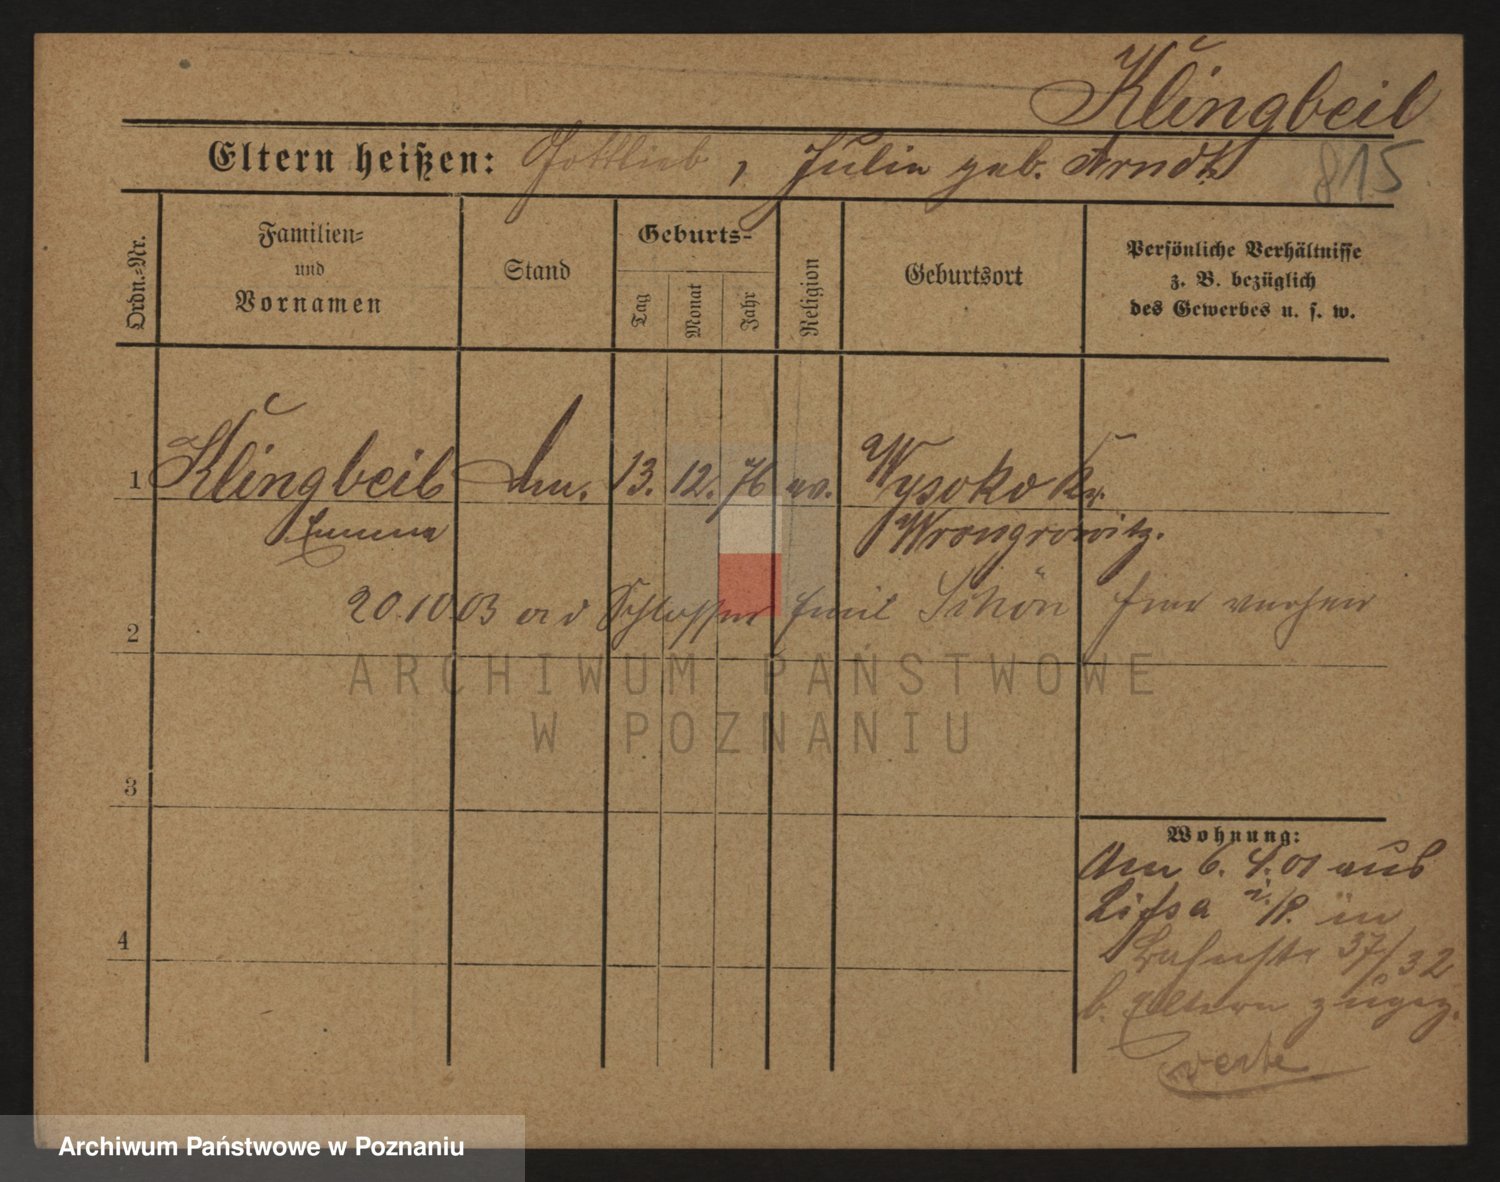 Klingbeil
Eltern heißen: Gottlieb, Julie geb. Arndt
815
Ordn.-Nr.
Familien-
und
Vornamen
Stand
Geburts-
Tag
Monat
Jahr
Religion
Geburtsort
Persönliche Verhältnisse
z. B. bezüglich
des Gewerbes u. s. w.
1 Klingbeil 13. 12. 76 ev. Wysoko Kr.
Emma Wrongrowitz.
20.10.03 Schlosser Emil Schön
2
3
4
Wohnung:
Am 6. 4. 01 aus
Lissa i./P. in
37/32
b. Eltern zugez.
verte
ARCHIWUM PAŃSTWOWE
W POZNANIU
Archiwum Państwowe w Poznaniu